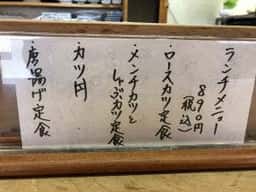 ランチメニュー
890円
(税込)
・ロースカツ定食
・メンチカツと
しぶカツ定食
・カツ丼
・唐揚げ定食